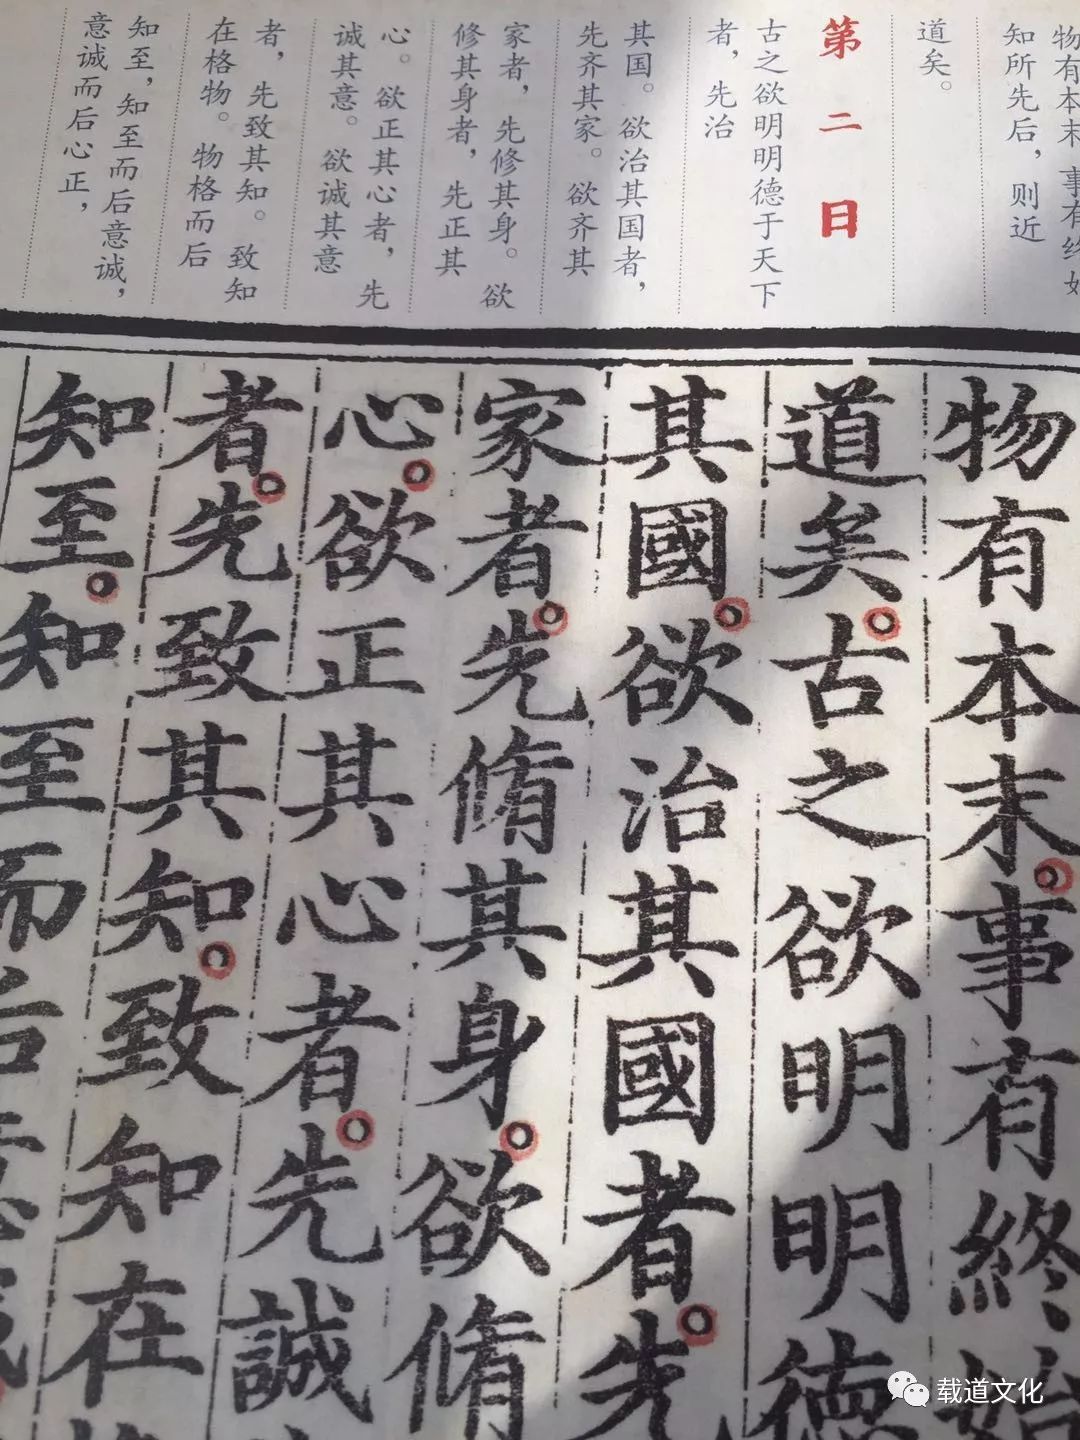 物有本末 事有终始
知所先后，则近
道矣。
第二日
古之欲明明德于天下
者，先治
其国。欲治其国者，
先齐其家。欲齐其
家者，先修其身。欲
修其身者，先正其
心。欲正其心者，先
诚其意。欲诚其意
者，先致其知。致知
在格物。物格而后
知至，知至而后意诚，
意诚而后心正，
物有本末。事有終始
道矣。古之欲明明德
其國。欲治其國者。先
家者。先脩其身。欲脩
心。欲正其心者。先誠
者。先致其知。致知在
知至。知至而后意
载道文化